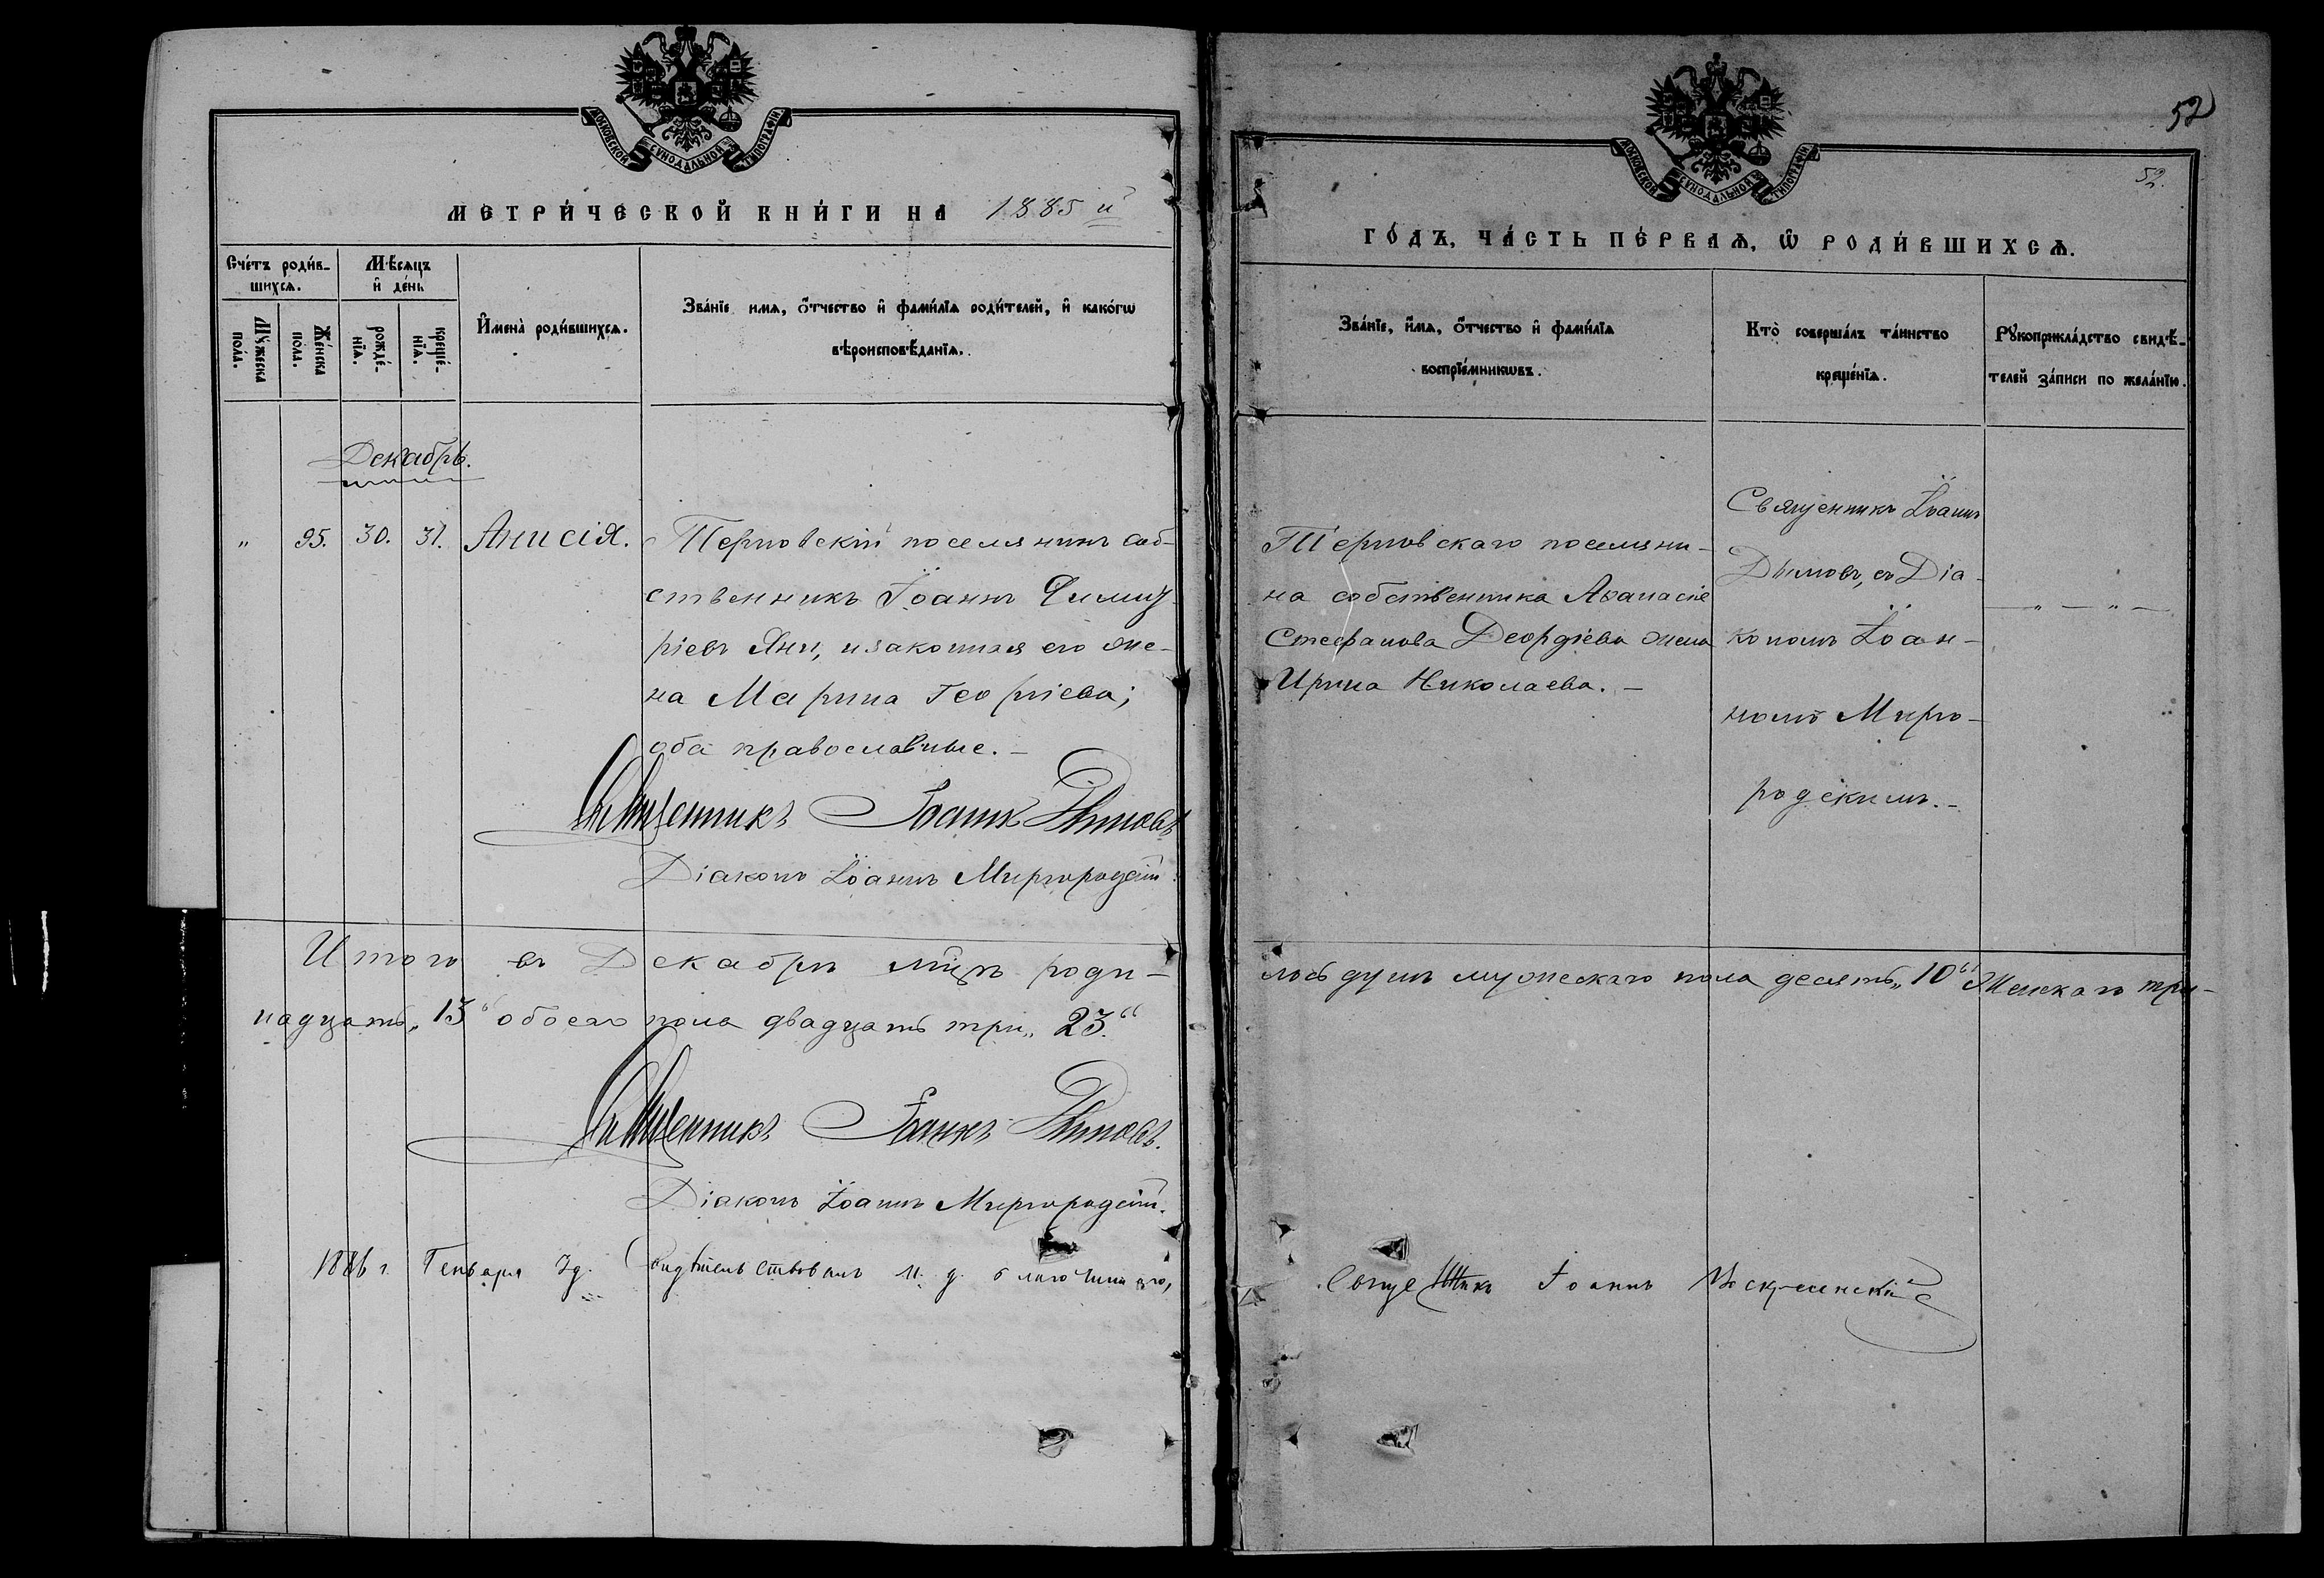 МОСКОВСКОЙ СѴНОДАЛЬНОЙ ТИПОГРАФІИ
МЕТРИ́ЧЕСКОЙ КНИ́ГИ НА 1885 й
Сче́тъ роди́в-
шихсѧ.
Мꙋ́жеска
по́ла.
Же́нска
по́ла.
Мѣ́сѧцъ
и҆ де́нь
рожде́-
нїѧ.
креще́-
нїѧ.
И҆мена̀ роди́вшихсѧ.
Зва́нїе имѧ, ѻ҆́тчество и҆ фами́лїѧ роди́телей, и҆ како́гѡ
вѣроисповѣ́данїѧ.
Декабрь.
" 95. 30. 31. Анисія.
Терновскій поселянинъ соб-
ственникъ Іоаннъ Димит-
ріевъ Яни, и законная его же-
на Марина Георгіева;
оба православные.-
Священникъ Іоаннъ Дымовъ
Діаконъ Іоаннъ Миргородскій.
Итого въ Декабрѣ мцѣ роди-
надцать „13“ обоего пола двадцать три „23.“
Священникъ Іоаннъ Дымовъ.
Діаконъ Іоаннъ Миргородскій.
1886 г. Генваря 7д. Свидѣтельствовалъ И. д. благочиннаго,
52
52.
МОСКОВСКОЙ СѴНОДАЛЬНОЙ ТИПОГРАФІИ
ГО́ДЪ, ЧА́СТЬ ПЕ́РВАѦ, Ѡ҆ РОДИ́ВШИХСѦ.
Зва́нїе, и҆́мѧ, ѻ҆́тчество и҆ фами́лїѧ
воспрїе́мникѡвъ.
Кто̀ соверша́лъ та́инство
креще́нїѧ.
Рꙋкоприкла́дство свидѣ́-
телей за́писи по жела́нїю.
Терновскаго поселяни-
на собственника Аѳанасія
Стефанова Деордіева жена
Ирина Николаева.-
Священникъ Іоаннъ
Дымовъ, съ Діа-
кономъ Іоан-
номъ Мирго-
родскимъ.-
— " — " —
лось душъ мужескаго пола десять „10“ Женскаго три-
Священникъ Іоаннъ Воскресенскій